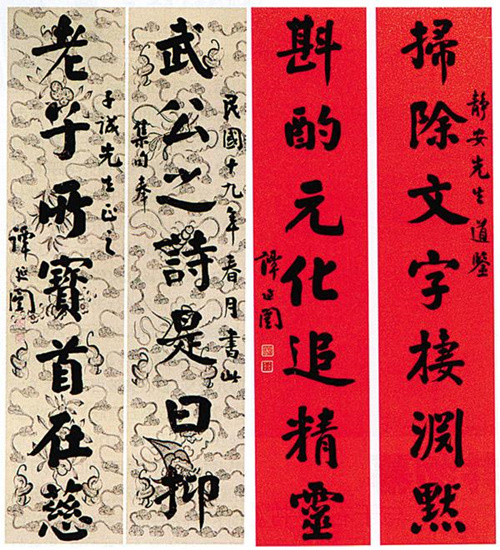 靜安先生道鑒
掃除文字棲淵默
斟酌元化追精靈
譚延闓
民國十九年春月書此
集句奉
武公之詩是曰抑
子誠先生正之
老子所寶首在慈
譚延闓